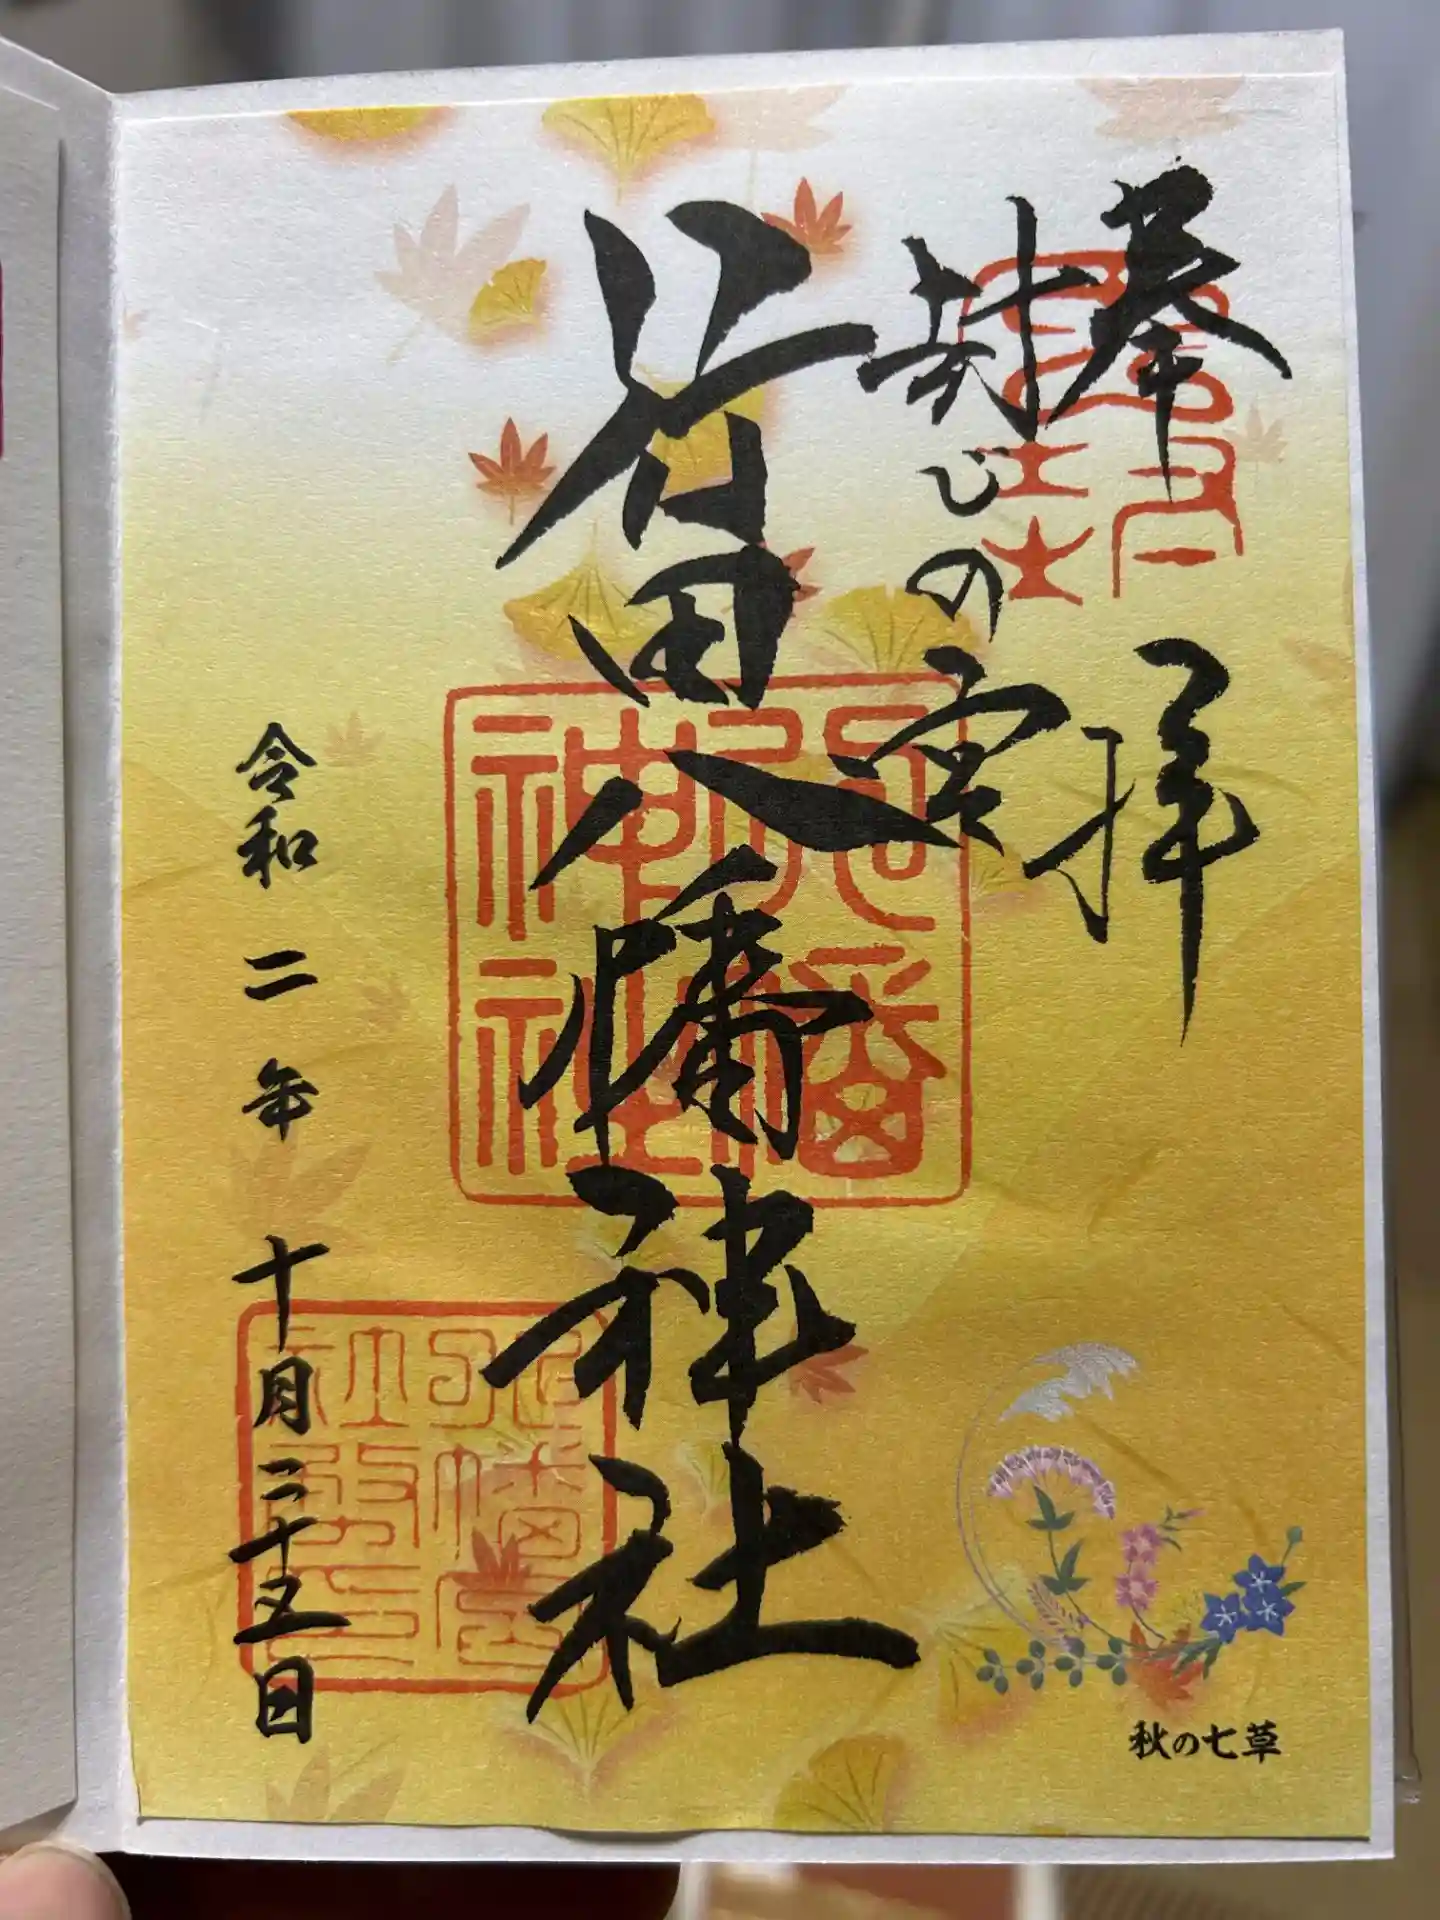 奉拝
封じの宮
田八幡神社
令和二年十月二十五日
秋の七草